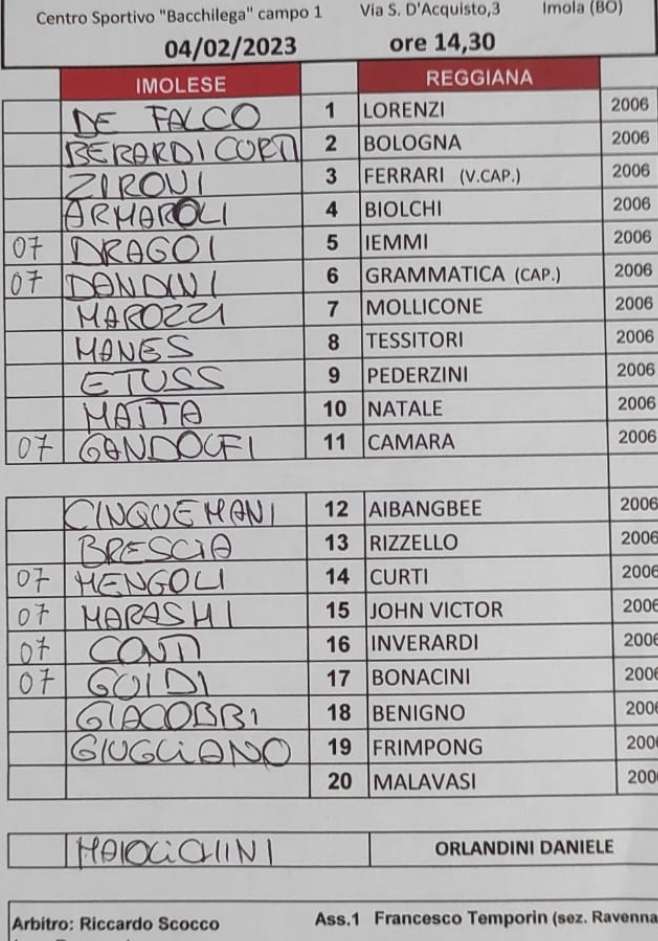 Centro Sportivo "Bacchilega" campo 1 Via S. D'Acquisto,3 Imola (BO)
04/02/2023 ore 14,30
IMOLESE REGGIANA
DE FALCO 1 LORENZI 2006
BERARDI CORTI 2 BOLOGNA 2006
ZIRONI 3 FERRARI (V.CAP.) 2006
ARMAROLI 4 BIOLCHI 2006
07 DRAGOI 5 IEMMI 2006
07 DANDINI 6 GRAMMATICA (CAP.) 2006
MAROZZI 7 MOLLICONE 2006
MANES 8 TESSITORI 2006
ETUSS 9 PEDERZINI 2006
MAITA 10 NATALE 2006
07 GANDOLFI 11 CAMARA 2006
CINQUEMANI 12 AIBANGBEE 2006
BRESCIA 13 RIZZELLO 2006
07 MENGOLI 14 CURTI 2006
07 MARASHI 15 JOHN VICTOR 2006
07 CONTI 16 INVERARDI 2006
07 GUIDI 17 BONACINI 2006
GIACOBBI 18 BENIGNO 2006
GIUGLIANO 19 FRIMPONG 200
20 MALAVASI 200
ORLANDINI DANIELE
Arbitro: Riccardo Scocco Ass.1 Francesco Temporin (sez. Ravenna